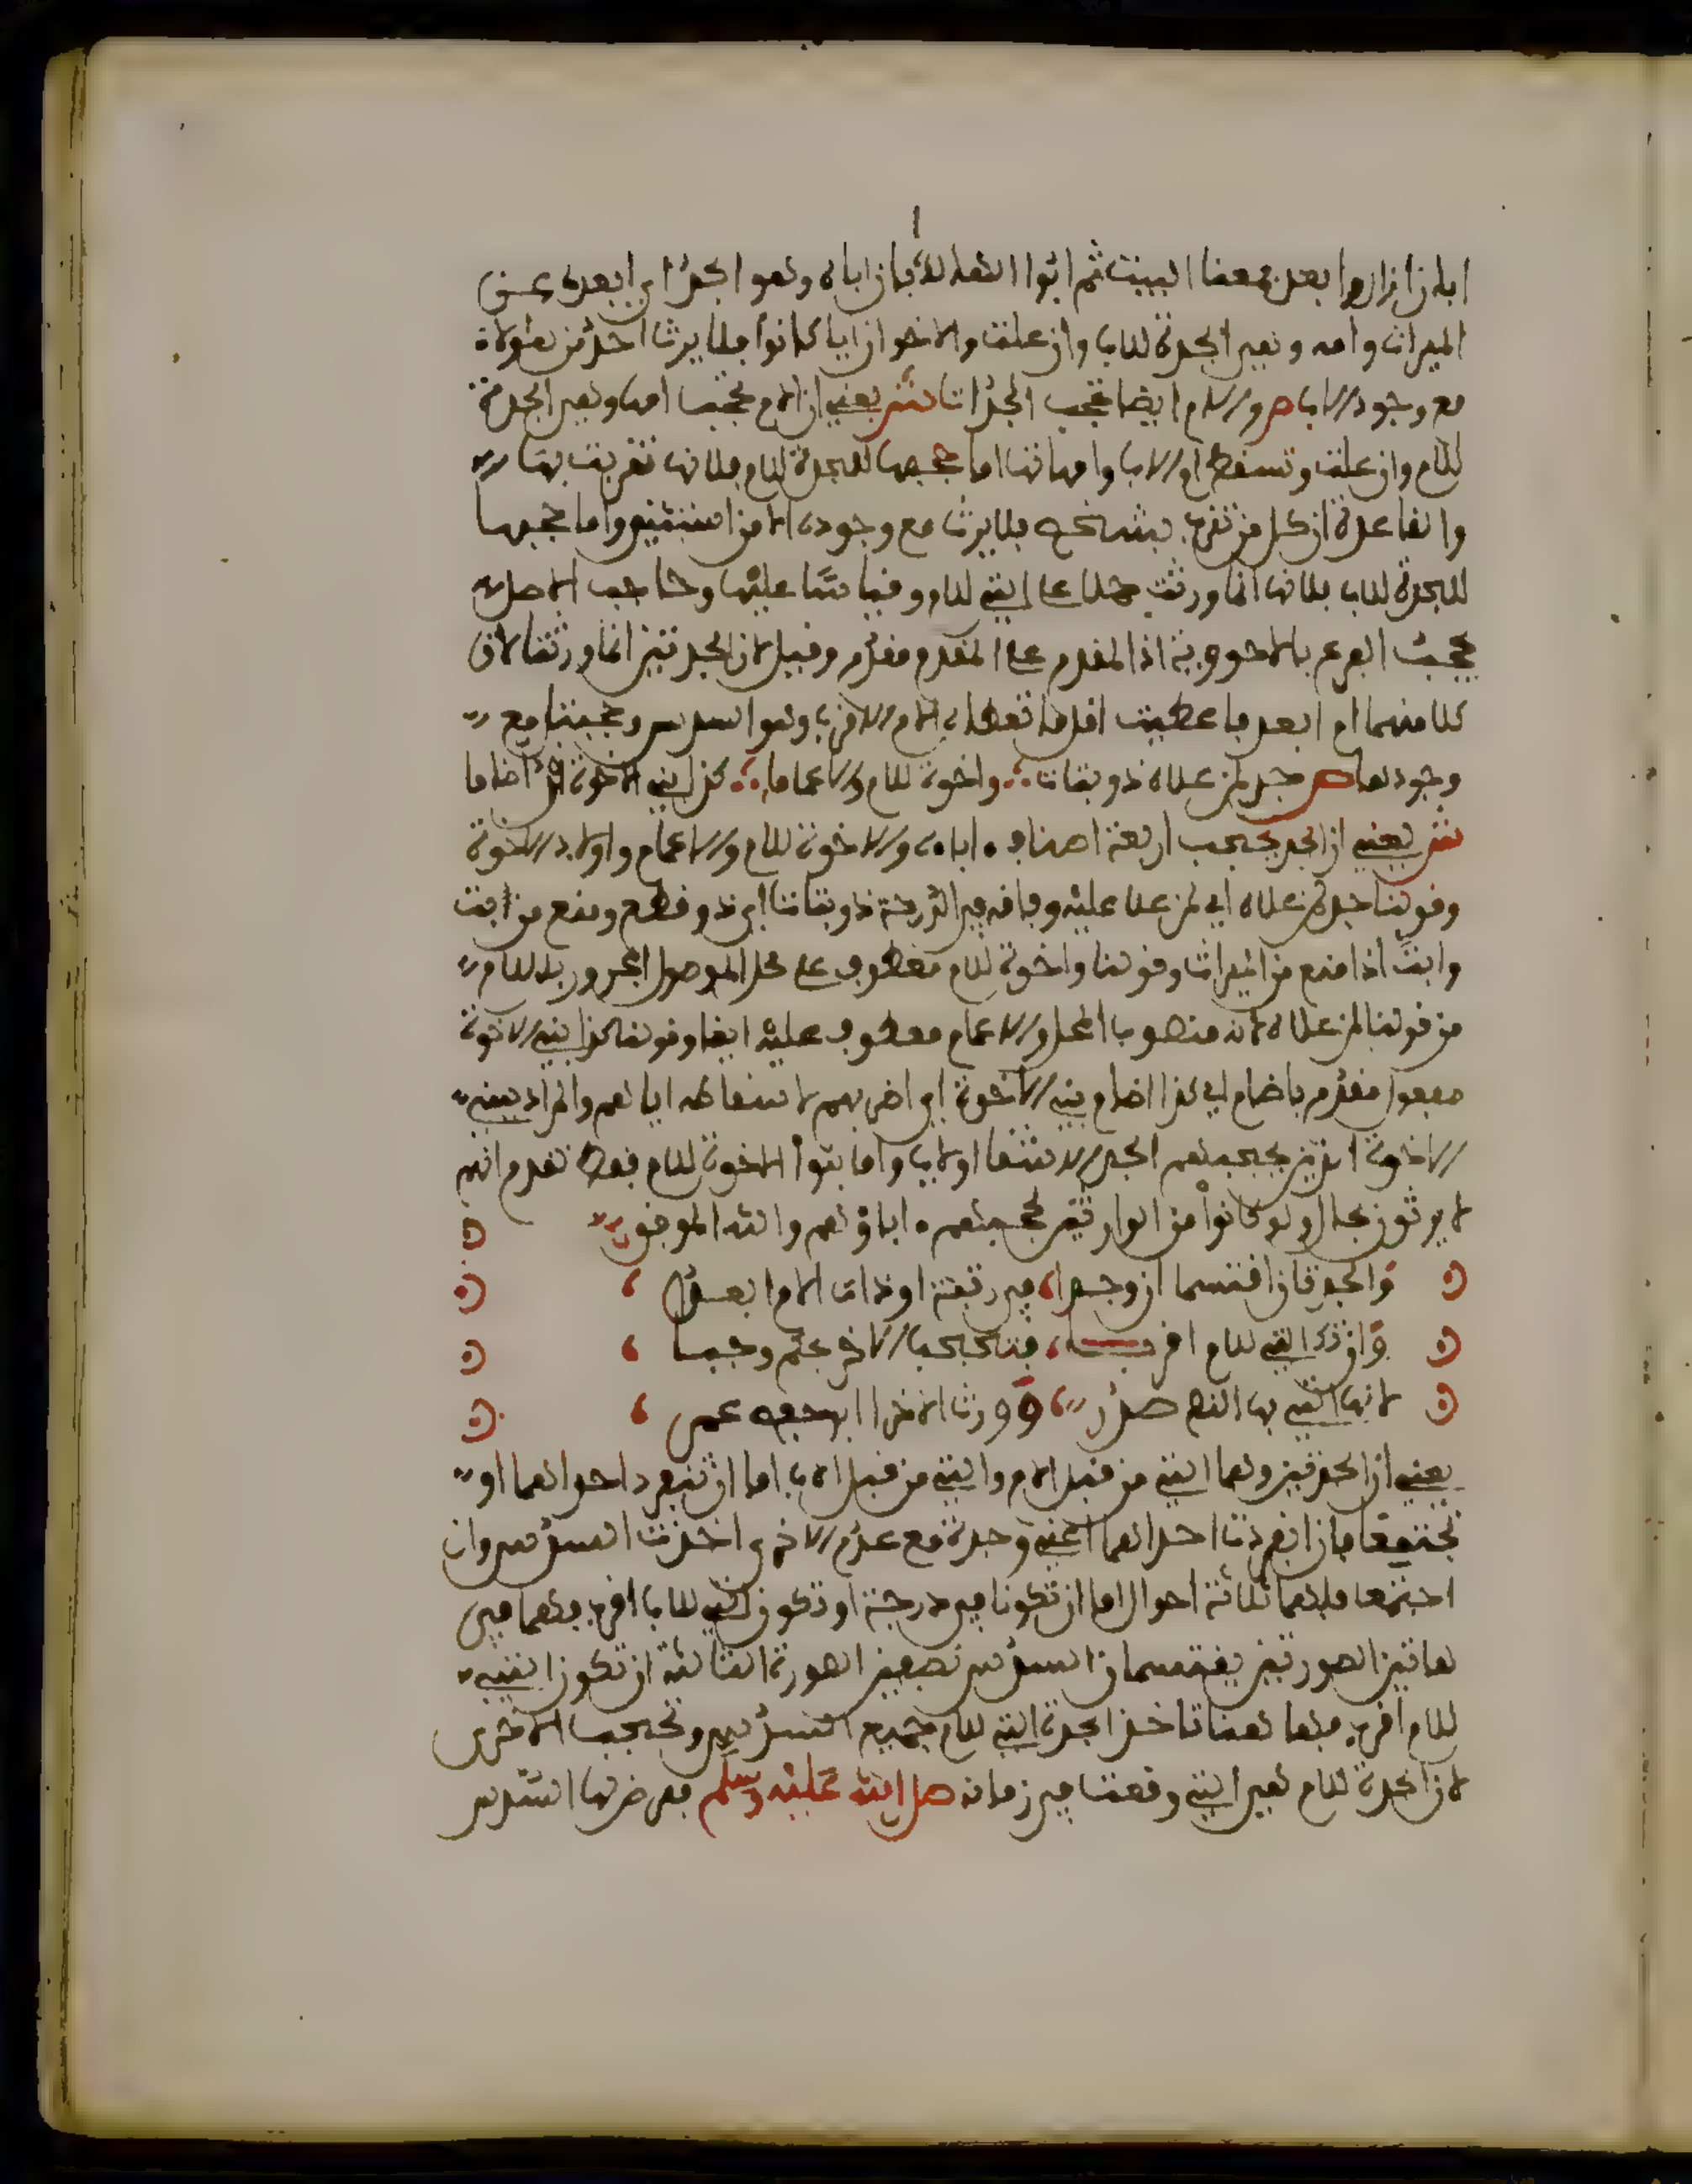 الميراث وامه وهي الجدة للاب وان علت والاخوان ايا كانوا فلا يرث احد من هؤلاء
مع وجود الاب ص والام ايضا تحجب الجدات ش يعني ان الام تحجب امها وهي الجدة
للام وان علت وتسقط ام الاب وامهاتها اما حجبها للجدة للام فلانها تقربت بها
والقاعدة ان كل من تقرب بشخص فلا يرث مع وجوده الا من استثني واما حجبها
للجدة للاب فلانها انما ورثت حملا على التي للام وقياسا عليها وحاجب الاصل
يحجب الفرع بالاحروية اذا المقدم على المقدم مقدم وقيل لان الجدتين انما ورثتا لان
كلا منهما ام ابعد فاعطيت اقل ما تعطاه الام الاقرب وهو السدس وحجبتا مع
وجودها ص جد لمن علاه ذو بتات واخوة للام والاعمام كذا بني الاخوة اضاما
ش يعني ان الجد يحجب اربعة اصناف اباءه والاخوة للام والاعمام واولاد الاخوة
وقولنا جد لمن علاه اي لمن علا عليه وفاقه في الدرجة ذو بتات اي ذو قطع ومنع من ابت
وابت اذا منع من الميراث وقولنا واخوة للام معطوف على محل الموصول المجرور باللام
من قولنا لمن علاه لانه منصوب المحل والاعمام معطوف عليه ايضا وقولنا كذا بني الاخوة
مفعول مقدم باضام اي كذا اضام بني الاخوة اي اضر بهم لاسقاطه اياهم والمراد ببني
الاخوة الذين يحجبهم الجد الاشقا او لاب واما بنوا الاخوة للام فقط تقدم انهم
لا يرثون بحال ولو كانوا من الوارثين لحجبهم اباؤهم والله الموفق
والجدتان اقتسما ان وجدا في رتبة او ذات الام ابعدا
وان تك التي للام اقربا فتحجب الاخرى حتم وجبا
لانها التي بها النص صدر وورث الاخرا ابو حفص عمر
يعني ان الجدتين وهما التي من قبل الام والتي من قبل الاب اما ان تنفرد احداهما او
تجتمعا فان انفردت احداهما اعني وجدة مع عدم الاخرى اخذت السدس وان
اجتمعا فلهما ثلاثة احوال اما ان تكونا في درجة او تكون التي للاب اقرب فهما في
هاتين الصورتين يقتسمان السدس نصفين الصورة الثالثة ان تكون التي
للام اقرب فها هنا تاخذ الجدة التي للام جميع السدس وتحجب الاخرى
لان الجدة للام هي التي وقعت في زمانه صلى الله عليه وسلم ففرض لها السدس